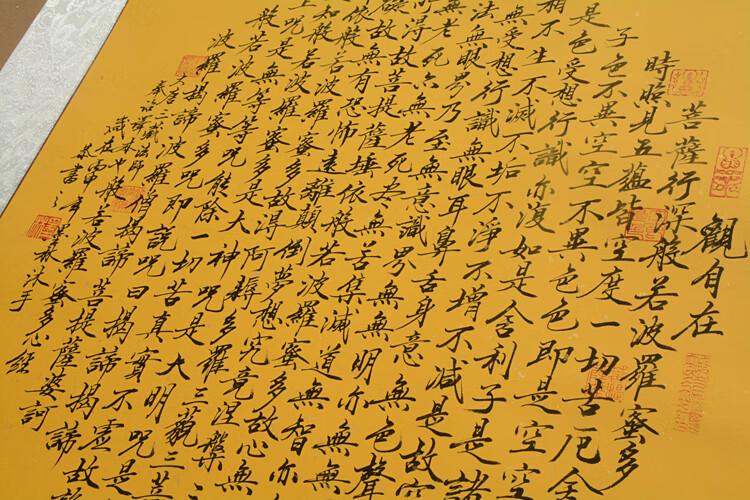 觀自在
菩薩行深般若波羅蜜多
時照見五蘊皆空度一切苦厄舍
子色不異空空不異色色即是空空
是色受想行識亦復如是舍利子是諸
相不生不滅不垢不淨不增不減是故空
無受想行識無眼耳鼻舌身意無色聲
法無眼界乃至無意識界無無明亦無無
無老死亦無老死盡無苦集滅道無智亦
得故菩提薩埵依般若波羅蜜多故心無
礙故無有恐怖遠離顛倒夢想究竟涅槃
依般若波羅蜜多故得阿耨多羅三藐三菩
知般若波羅蜜多是大神咒是大明咒是
上咒是無等等咒能除一切苦真實不虛故
般若波羅蜜多咒即說咒曰揭諦揭諦
波羅揭諦波羅僧揭諦菩提薩婆訶
般若波羅蜜多心經
沐手
恭書